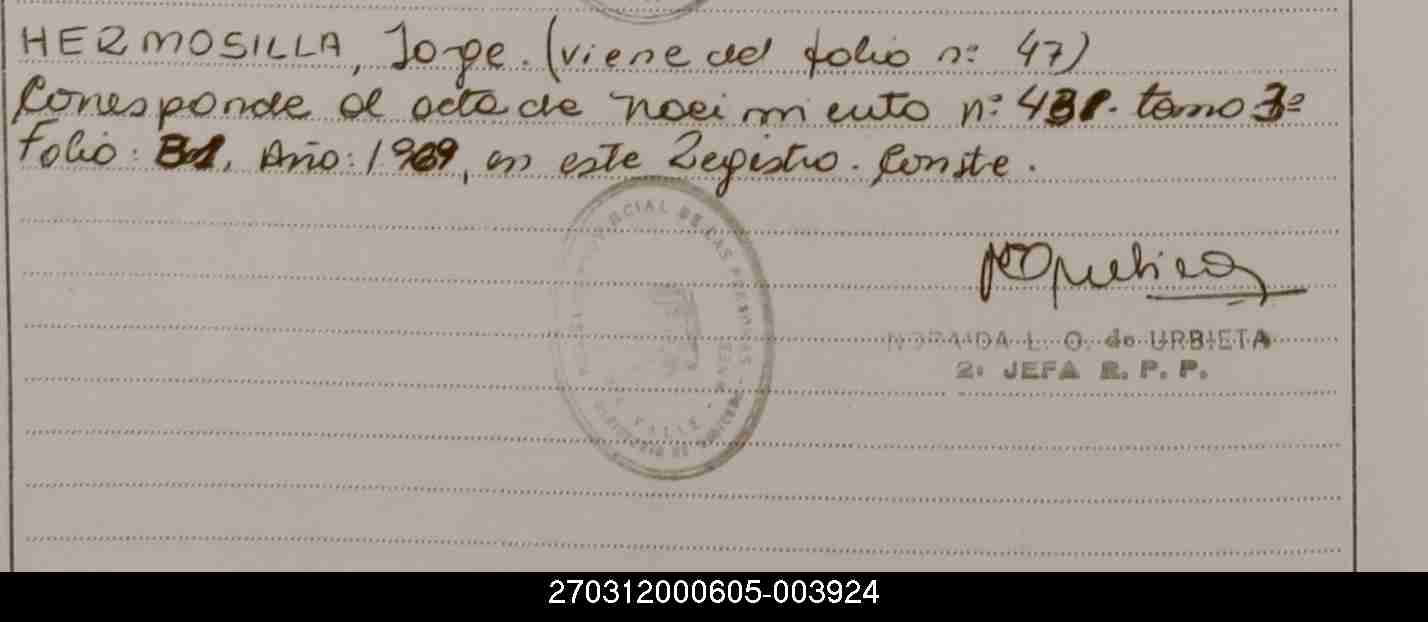 HERMOSILLA, Jorge. (viene del folio n: 47)
Corresponde al acta de nacimiento n: 431. tomo 3º
Folio: 31. Año: 1969, en este Registro. Conste.
CIAL DE LAS PERSONAS
VALLE
L. O. de URBIETA
2: JEFA R. P. P.
270312000605-003924